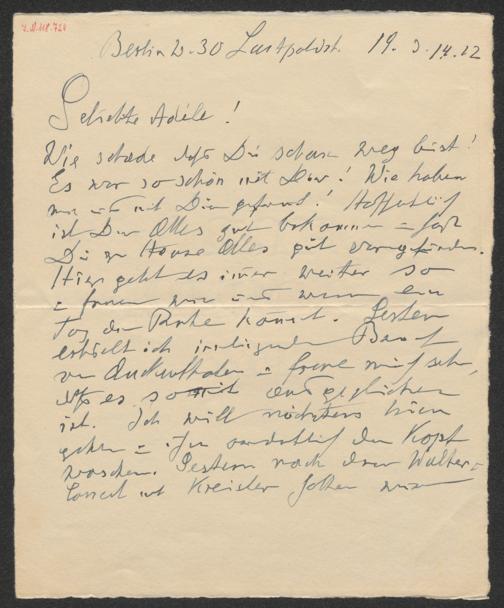 Berlin W. 30 19. 3.
Geliebte Adèle!
Wie schade dass Du schon weg bist!
Es war so schön mit Dir! Wie haben
wir uns mit Dir gefreut! Hoffentlich
ist Dir Alles gut bekommen = hast
Du zu Hause Alles gut vorgefunden.
Hier geht es immer weiter so
= freuen wir uns wenn ein
Tag der Ruhe kommt. Gestern
erhielt ich Brief
von = freue mich sehr,
dass es so ausgeglichen
ist. Ich will nächstens hin
gehen = ihr ordentlich den Kopf
waschen. Gestern nach dem Walter=
Concert mit Kreisler wir